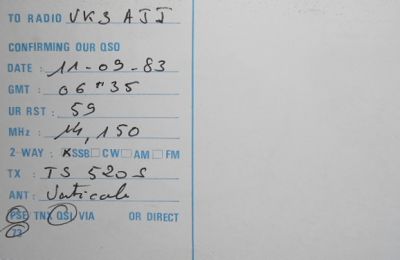 TO RADIO VK3 AJJ
CONFIRMING OUR QSO
DATE : 11-09-83
GMT : 06"35
UR RST : 59
MHz : 14,150
2-WAY : XSSB CW AM FM
TX : TS 520S
ANT: Verticale
PSE TNX QSL VIA OR DIRECT
73